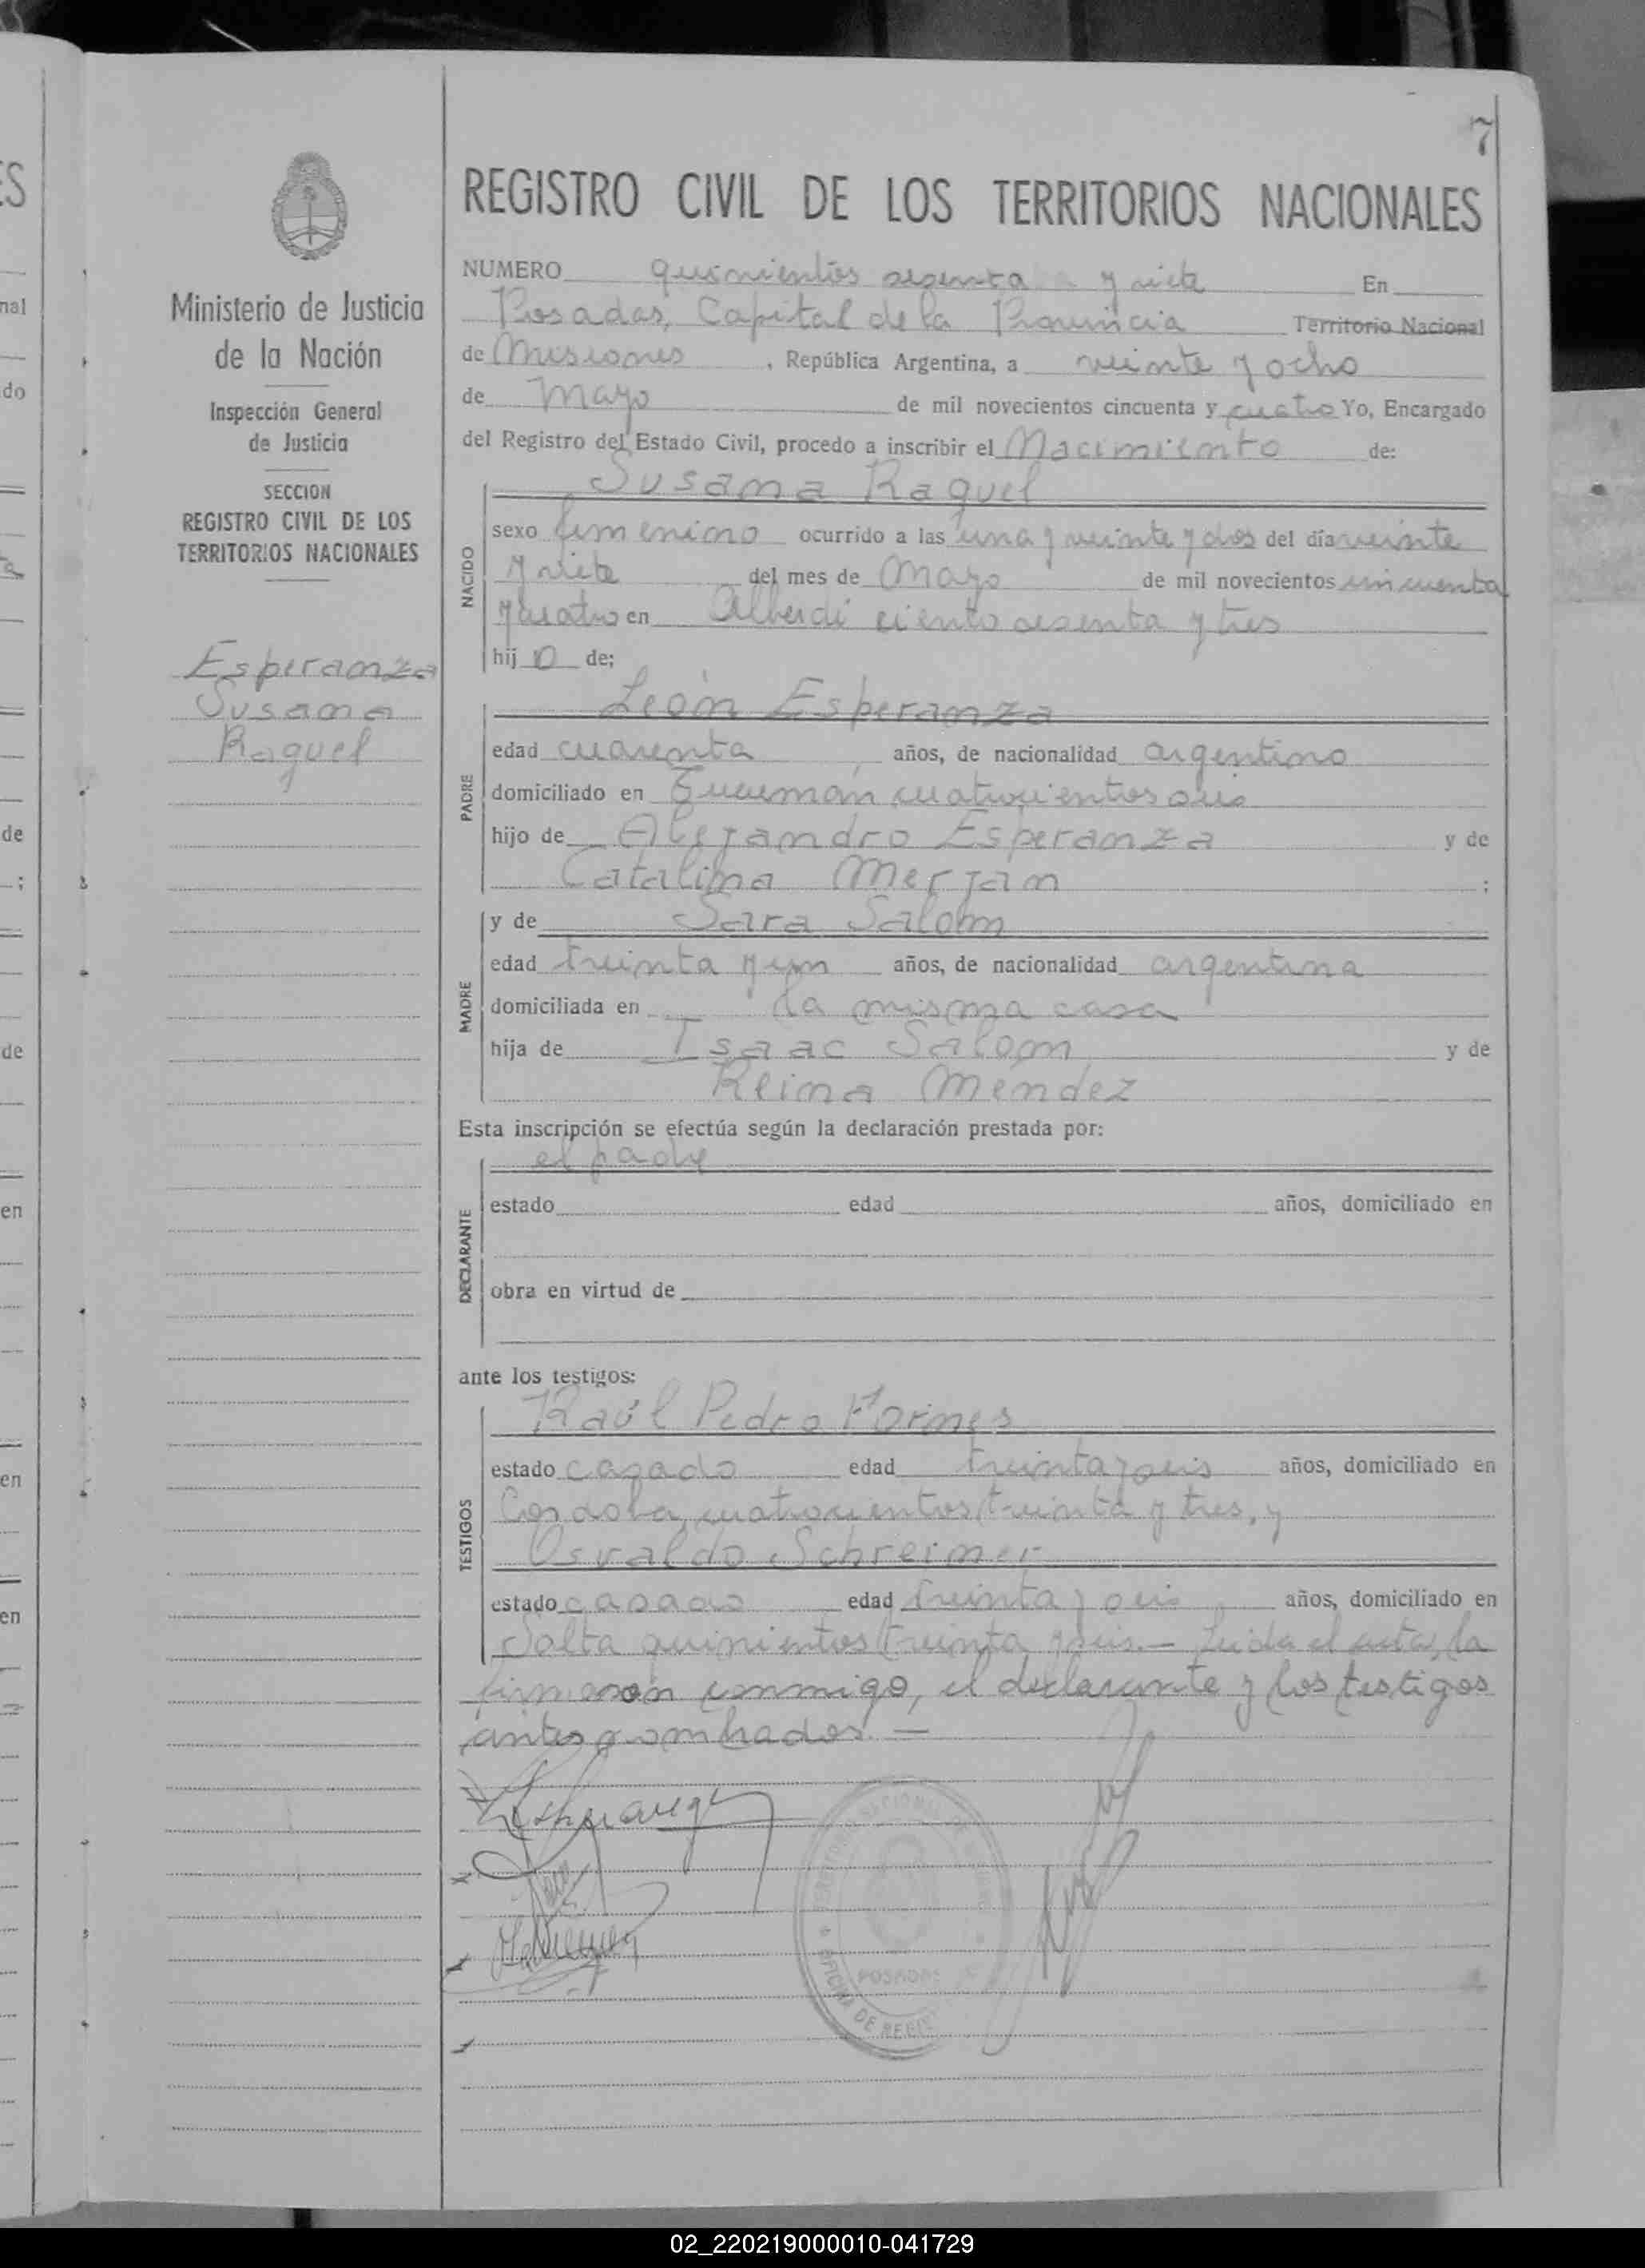 7
REGISTRO CIVIL DE LOS TERRITORIOS NACIONALES
Ministerio de Justicia
de la Nación
Inspección General
de Justicia
SECCION
REGISTRO CIVIL DE LOS
TERRITORIOS NACIONALES
Esperanza
Susana
Raquel
NUMERO quinientos sesenta y siete En
Posadas, Capital de la Provincia Territorio Nacional
de Misiones, República Argentina, a veinte y ocho
de Mayo de mil novecientos cincuenta y cuatro Yo, Encargado
del Registro del Estado Civil, procedo a inscribir el Nacimiento de:
NACIDO
Susana Raquel
sexo femenino ocurrido a las una y veinte y dos del día veinte
y siete del mes de Mayo de mil novecientos cincuenta
y cuatro en Alberdi ciento sesenta y tres
hij a de;
PADRE
León Esperanza
edad cuarenta años, de nacionalidad argentino
domiciliado en Tucumán cuatrocientos seis
hijo de Alejandro Esperanza y de
Catalina Merjan ;
MADRE
y de Sara Salom
edad treinta y un años, de nacionalidad argentina
domiciliada en la misma casa
hija de Isaac Salom y de
Reina Méndez
Esta inscripción se efectúa según la declaración prestada por:
DECLARANTE
el padre
estado edad años, domiciliado en
obra en virtud de
ante los testigos:
TESTIGOS
Raúl Pedro Fornes
estado casado edad treinta y seis años, domiciliado en
Cordoba, cuatrocientos treinta y tres, y
Osvaldo Schreiner
estado casado edad treinta y seis años, domiciliado en
Salta quinientos treinta y seis.— Leída el acta, la
firmaron conmigo, el declarante y los testigos
antes nombrados.—
POSADAS
02_220219000010-041729